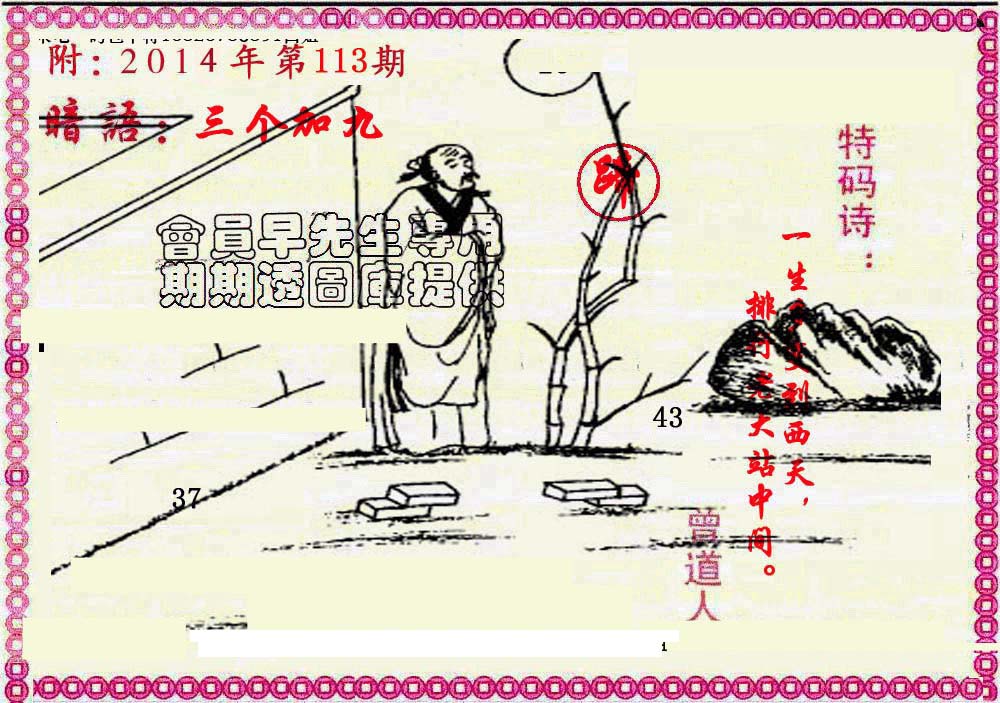 附：2014年第113期
暗語：三个加九
會員早先生專用
期期透圖庫提供
特码诗：
一生 到西天，
排行老大站中间。
43
37
曾道人
1